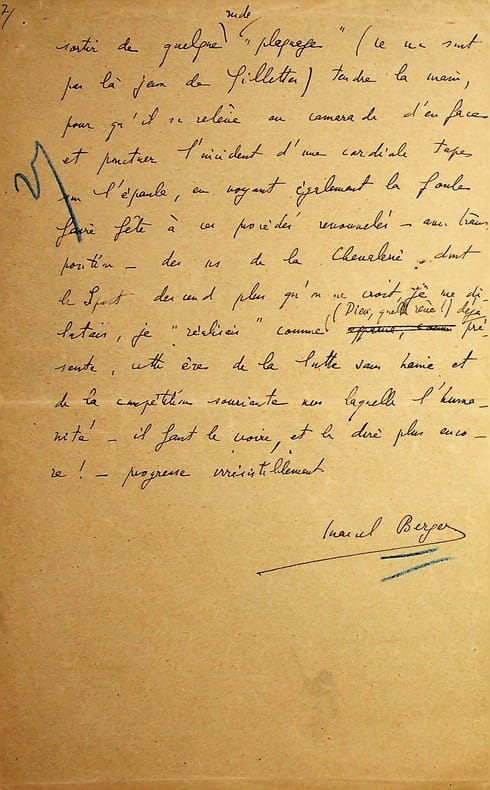 7/
rude
sortir de quelque "plaquage" (ce ne sont
pas là jeux de fillettes) tendre la main,
pour qu'il se relève au camarade d'en face
et ponctuer l'incident d'une cordiale tape
sur l'épaule, en voyant également la foule
faire fête à ces procédés renouvelés – avec trans
position – des us de la Chevalerie dont
le Sport descend plus qu'on ne croit, je me di-
latais, je "réalisais" comme (Dieu, quel rêve !) déjà
pré-
sente, cette ère de la lutte sans haine et
de la compétition souriante vers laquelle l'huma-
nité – il faut le croire, et le dire plus enco-
re ! – progresse irrésistiblement
Marcel Berger